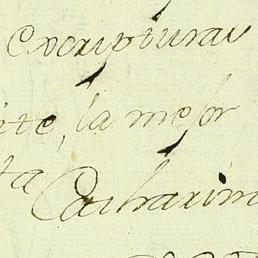 escripturas
ite, la mejor
ta Catharina